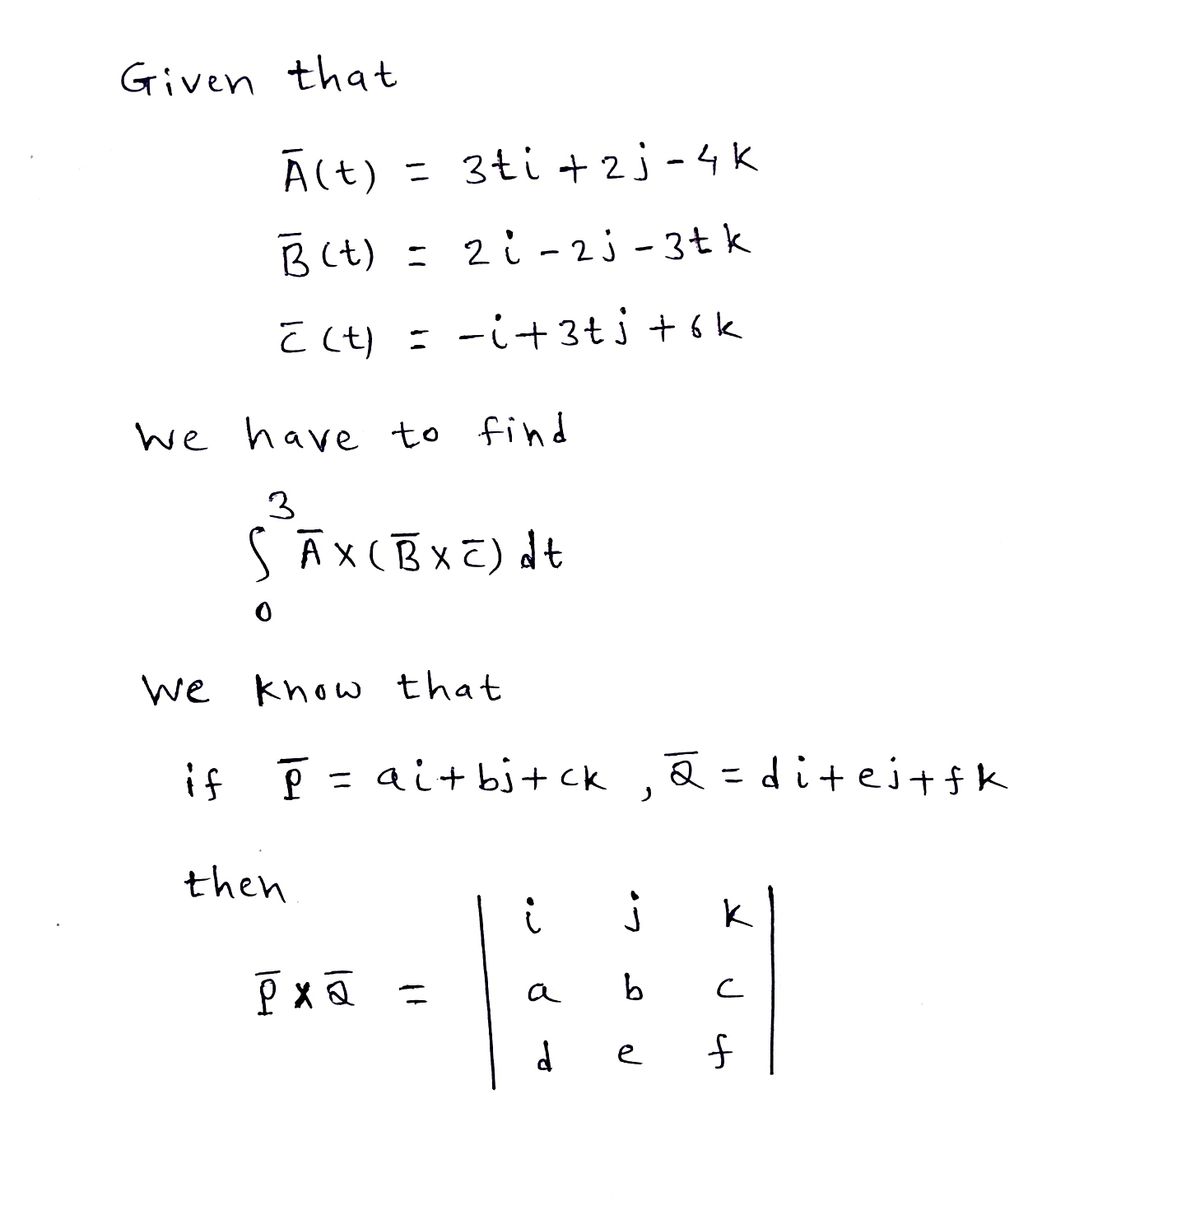 Given that
Ā(t) = 3ti + 2j - 4k
B̄(t) = 2i - 2j - 3tk
C̄(t) = -i + 3tj + 6k
We have to find
∫₀³ Ā × (B̄ × C̄) dt
We know that
if P̄ = ai + bj + ck , Q̄ = di + ej + fk
then
i j k
P̄ × Q̄ = a b c
d e f